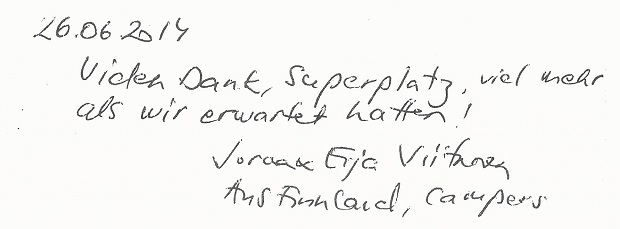 26.06.2014
Vielen Dank, Superplatz, viel mehr
als wir erwartet hatten!
Erja
Aus Finnland, Campers